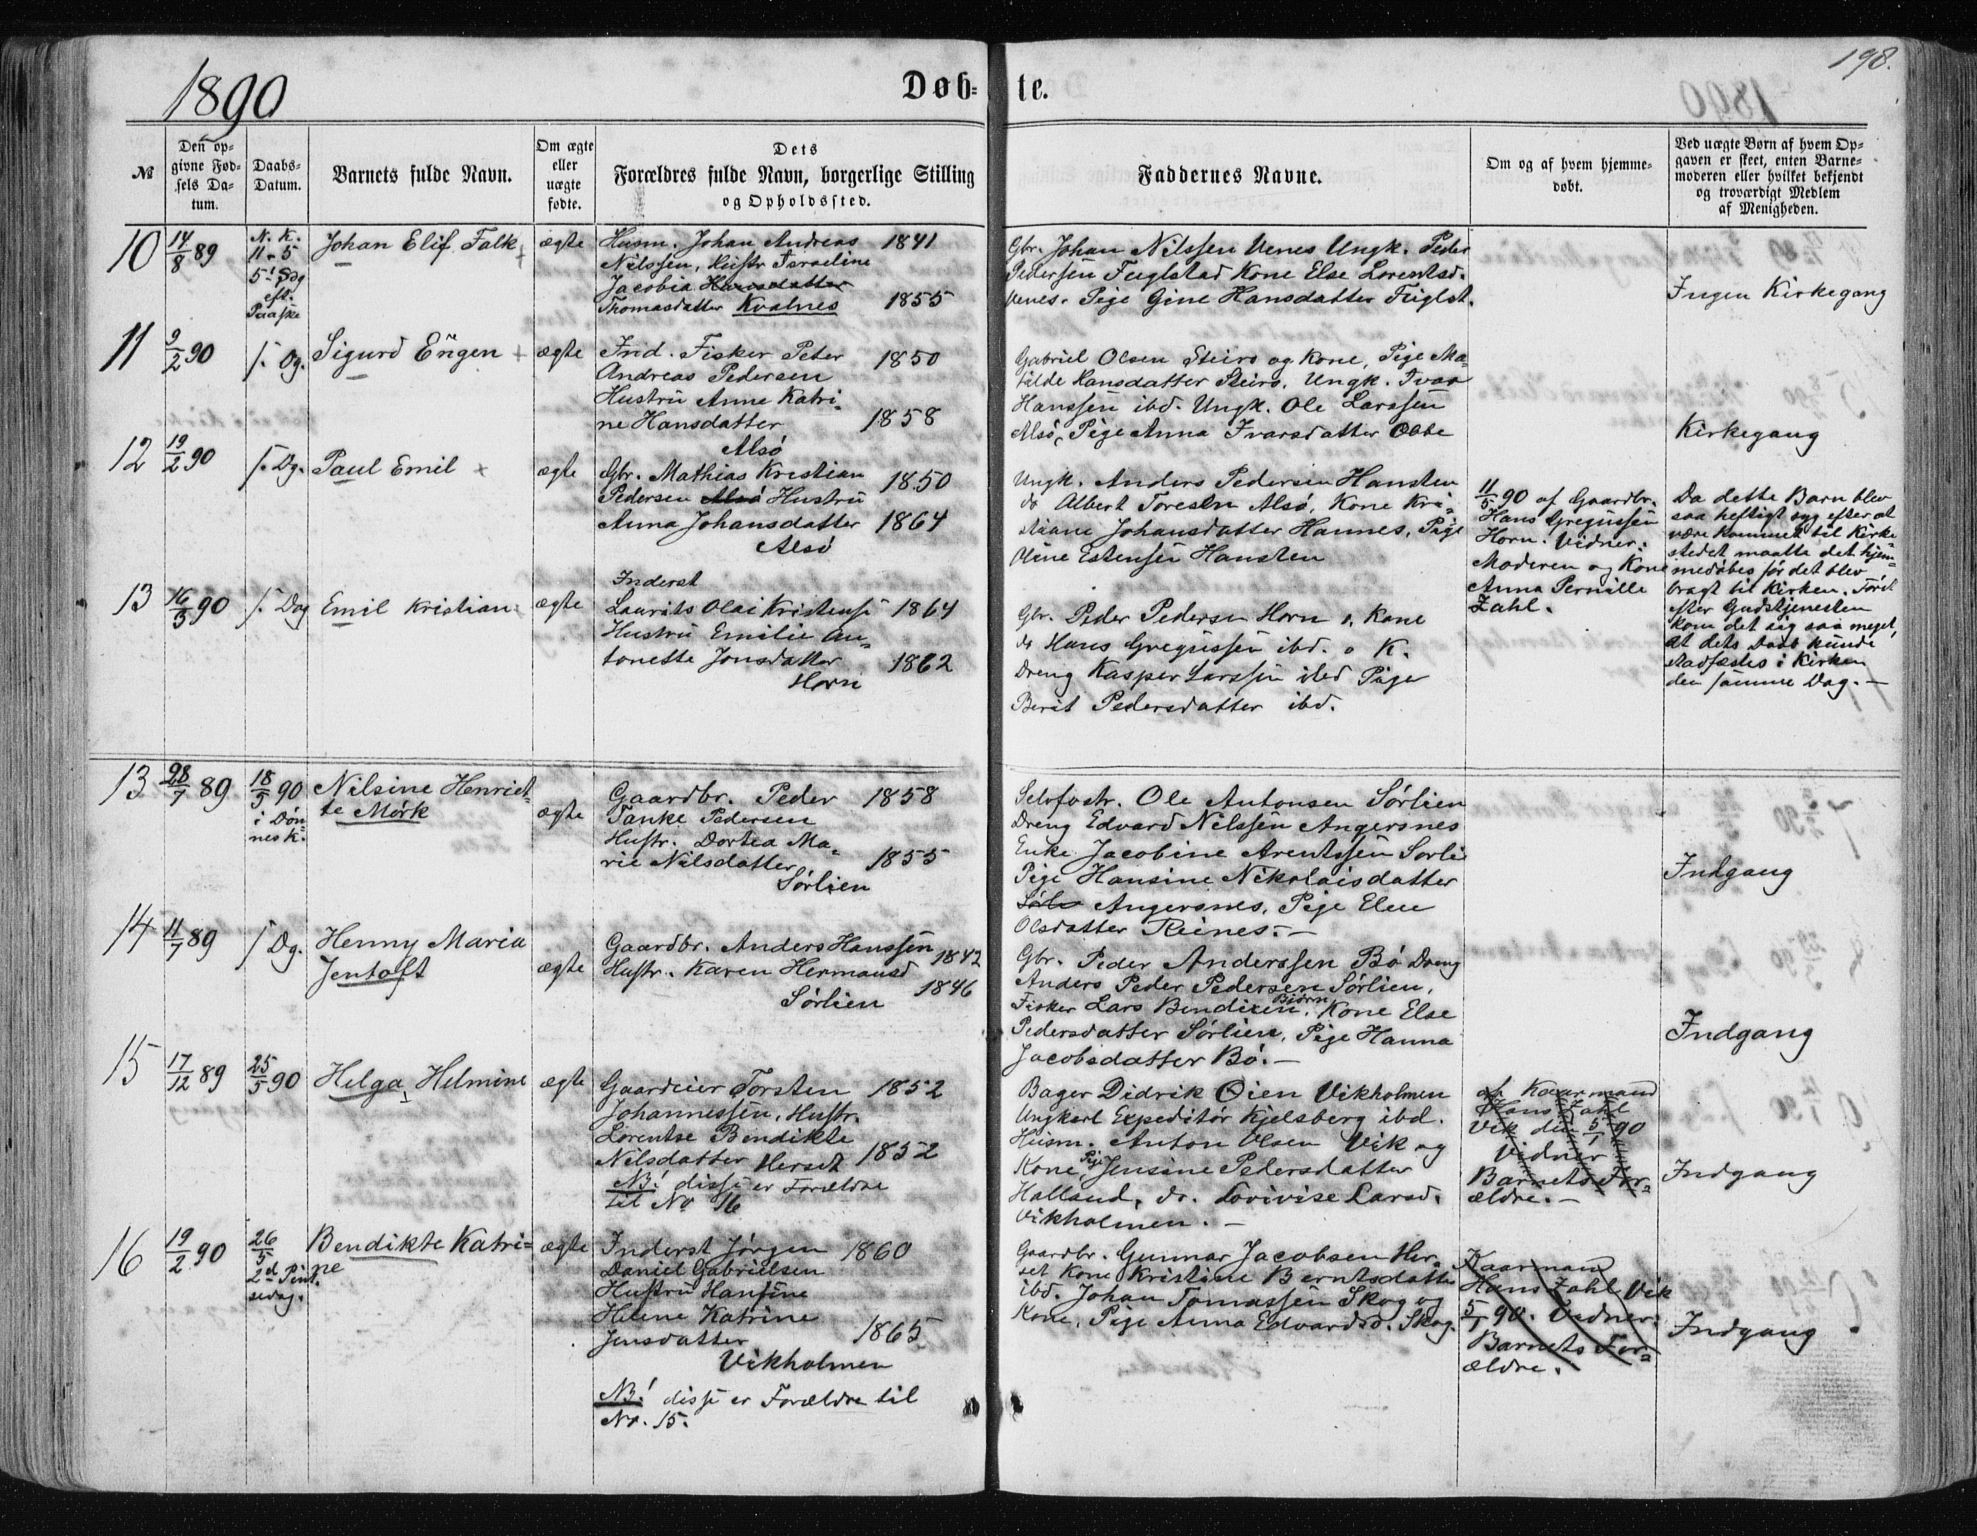 1890
Døb-
te.
198.
№
Den op-
givne Fød-
sels Da-
tum.
Daabs-
Datum.
Barnets fulde Navn.
Om ægte
eller
uægte
fødte.
Dets
Forældres fulde Navn, borgerlige Stilling
og Opholdssted.
Faddernes Navne.
Om og af hvem hjemme-
døbt.
Ved uægte Børn af hvem Op-
gaven er skeet, enten Barne-
moderen eller hvilket bekjendt
og troværdigt Medlem
af Menigheden.
10
14/8 89
N. K.
11-5
5! Sdg
eft.
Paaske
Johan Elif Falk
ægte
Husm. Johan Andreas 1841
Nilssen, Hustr Israeline
Jacobia Hansdatter
Thomasdatter Kvalnes 1855
Gbr. Johan Nilssen Venes Ungk. Peder
Pedersen Fuglstad Kone Else Lorentsd.
Venes. Pige Gine Hansdatter Fuglst.
Ingen Kirkegang
11
9/2 90
s. Dg.
Sigurd Engen
ægte
Ind. Fisker Peter 1850
Andreas Pedersen
Hustru Anne Katri-
ne Hansdatter 1858
Alsø
Gabriel Olsen Steiro og Kone, Pige Ma-
tilde Hansdatter Steiro, Ungk. Ivar
Hanssen ibd. Ungk. Ole Larssen
Alsø, Pige Anna Ivarsdatter Obbe
Kirkegang
12
19/2 90
s. Dg.
Paul Emil
ægte
Gbr. Mathias Kristian 1850
Pedersen Alsø Hustru
Anna Johansdatter 1864
Alsø
Ungk. Anders Pedersen Hansten
do Albert Toresen Alsø, Kone Kri-
stiane Johansdatter Hannes, Pige
Oline Estensen Hansten
11/5 90 af Gaardbr.
Hans Gregussen
Horn. Vidner:
Moderen og Kone
Anna Pernille
Zahl.
Da dette Barn blev
saa heftigt syg efter at
være kommet til Kirke-
stedet maatte det hjem-
medøbes før det blev
bragt til Kirken. Først
efter Gudstjenesten
kom det sig saa meget,
at dets Daab kunde
stadfæstes i Kirken
den samme Dag.
13
16/3 90
s. Dag
Emil Kristian
ægte
Inderst
Laurits Olai Kristensen 1864
Hustru Emilie An-
tonette Jonsdatter 1862
Horn
Gbr. Peder Pedersen Horn o. Kone
do Hans Gregussen ibd. o K.
Dreng Kasper Larssen ibd Pige
Berit Pedersdatter ibd.
13
28/7 89
18/5 90
i Døn-
nes K.
Nilsine Henriet-
te Mørk
ægte
Gaardbr. Peder 1858
Tanke Pedersen
Hustr. Dortea Ma-
rie Nilsdatter 1855
Sørlien
Selvfostr. Ole Antonsen Sørlien
Dreng Edvard Nilssen Angersnes
Enke Jacobine Arentssen Sørli
Pige Hansine Nikolaisdatter
Angersnes, Pige Elen
Olsdatter Reines.
Indgang
14
11/7 89
s Dg.
Henny Maria
Jentoft
ægte
Gaardbr. Anders Hanssen 1842
Hustr. Karen Hermansd 1846
Sørlien
Gbr. Peder Anderssen Bø Dreng
Anders Peder Pedersen Sørlien,
Fisker Lars Bendixen Bjørn, Kone Else
Pedersdatter Sørlien, Pige Hanna
Jacobsdatter Bø.
Indgang
15
17/12 89
25/5 90
Helga Helmine
ægte
Gaardeier Torsten 1852
Johannessen, Hustr.
Lorentse Bendikte
Nilsdatter Herset 1852
NB! disse er Forældre
til No 16
Bager Didrik Øien Vikholmen
Ungkarl Expeditør Kjelsberg ibd.
Husm. Anton Olsen Vik og
Kone Pige Jensine Pedersdatter
Halland, do. Lovivise Larsd.
Vikholmen.
af Kaarmand
Hans Zahl
Vik den 5/1 90
Vidner
Barnets For-
ældre.
Indgang
16
19/2 90
26/5
2d Pint-
sedag.
Bendikte Katri-
ne
ægte
Inderst Jørgen 1860
Daniel Gabrielsen
Hustru Hansine
Helene Katrine
Jensdatter 1865
Vikholmen
NB! disse er Forældre til
No. 15.
Gaardbr. Gunnar Jacobsen Her-
set Kone Kristine Berntsdatter
ibd. Johan Tomassen Skog og
Kone, Pige Anna Edvardsd. Skog.
Kaarmand
Hans Zahl Vik
5/1 90. Vidner:
Barnets For-
ældre.
Indgang